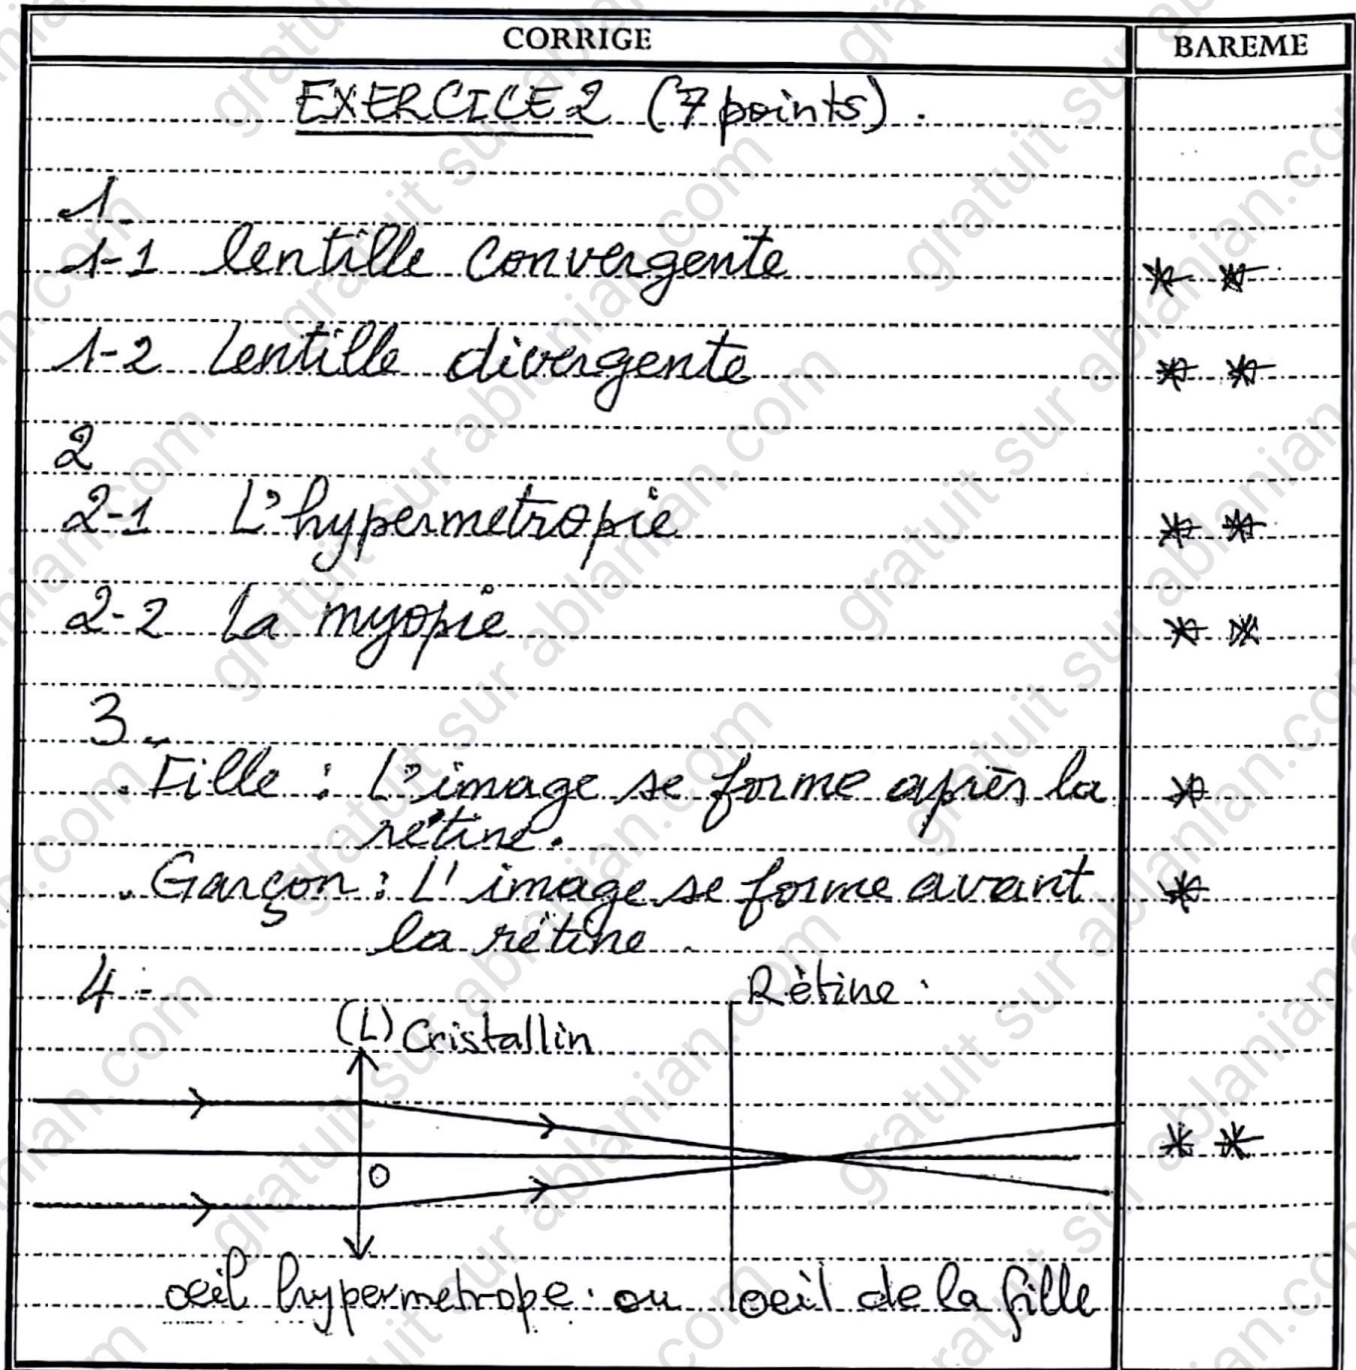 CORRIGE
BAREME
EXERCICE 2 (7 points).
1_
1-1 lentille convergente
* *
1-2 Lentille divergente
* *
2
2-1 L'hypermetropie
* *
2-2 La myopie
* *
3_
. Fille : L'image se forme après la
*
rétine.
. Garçon : L'image se forme avant
*
la rétine.
4-
Rétine.
(L) Cristallin
* *
O
oeil hypermetrope. ou oeil de la fille
gratuit sur ablanian.com